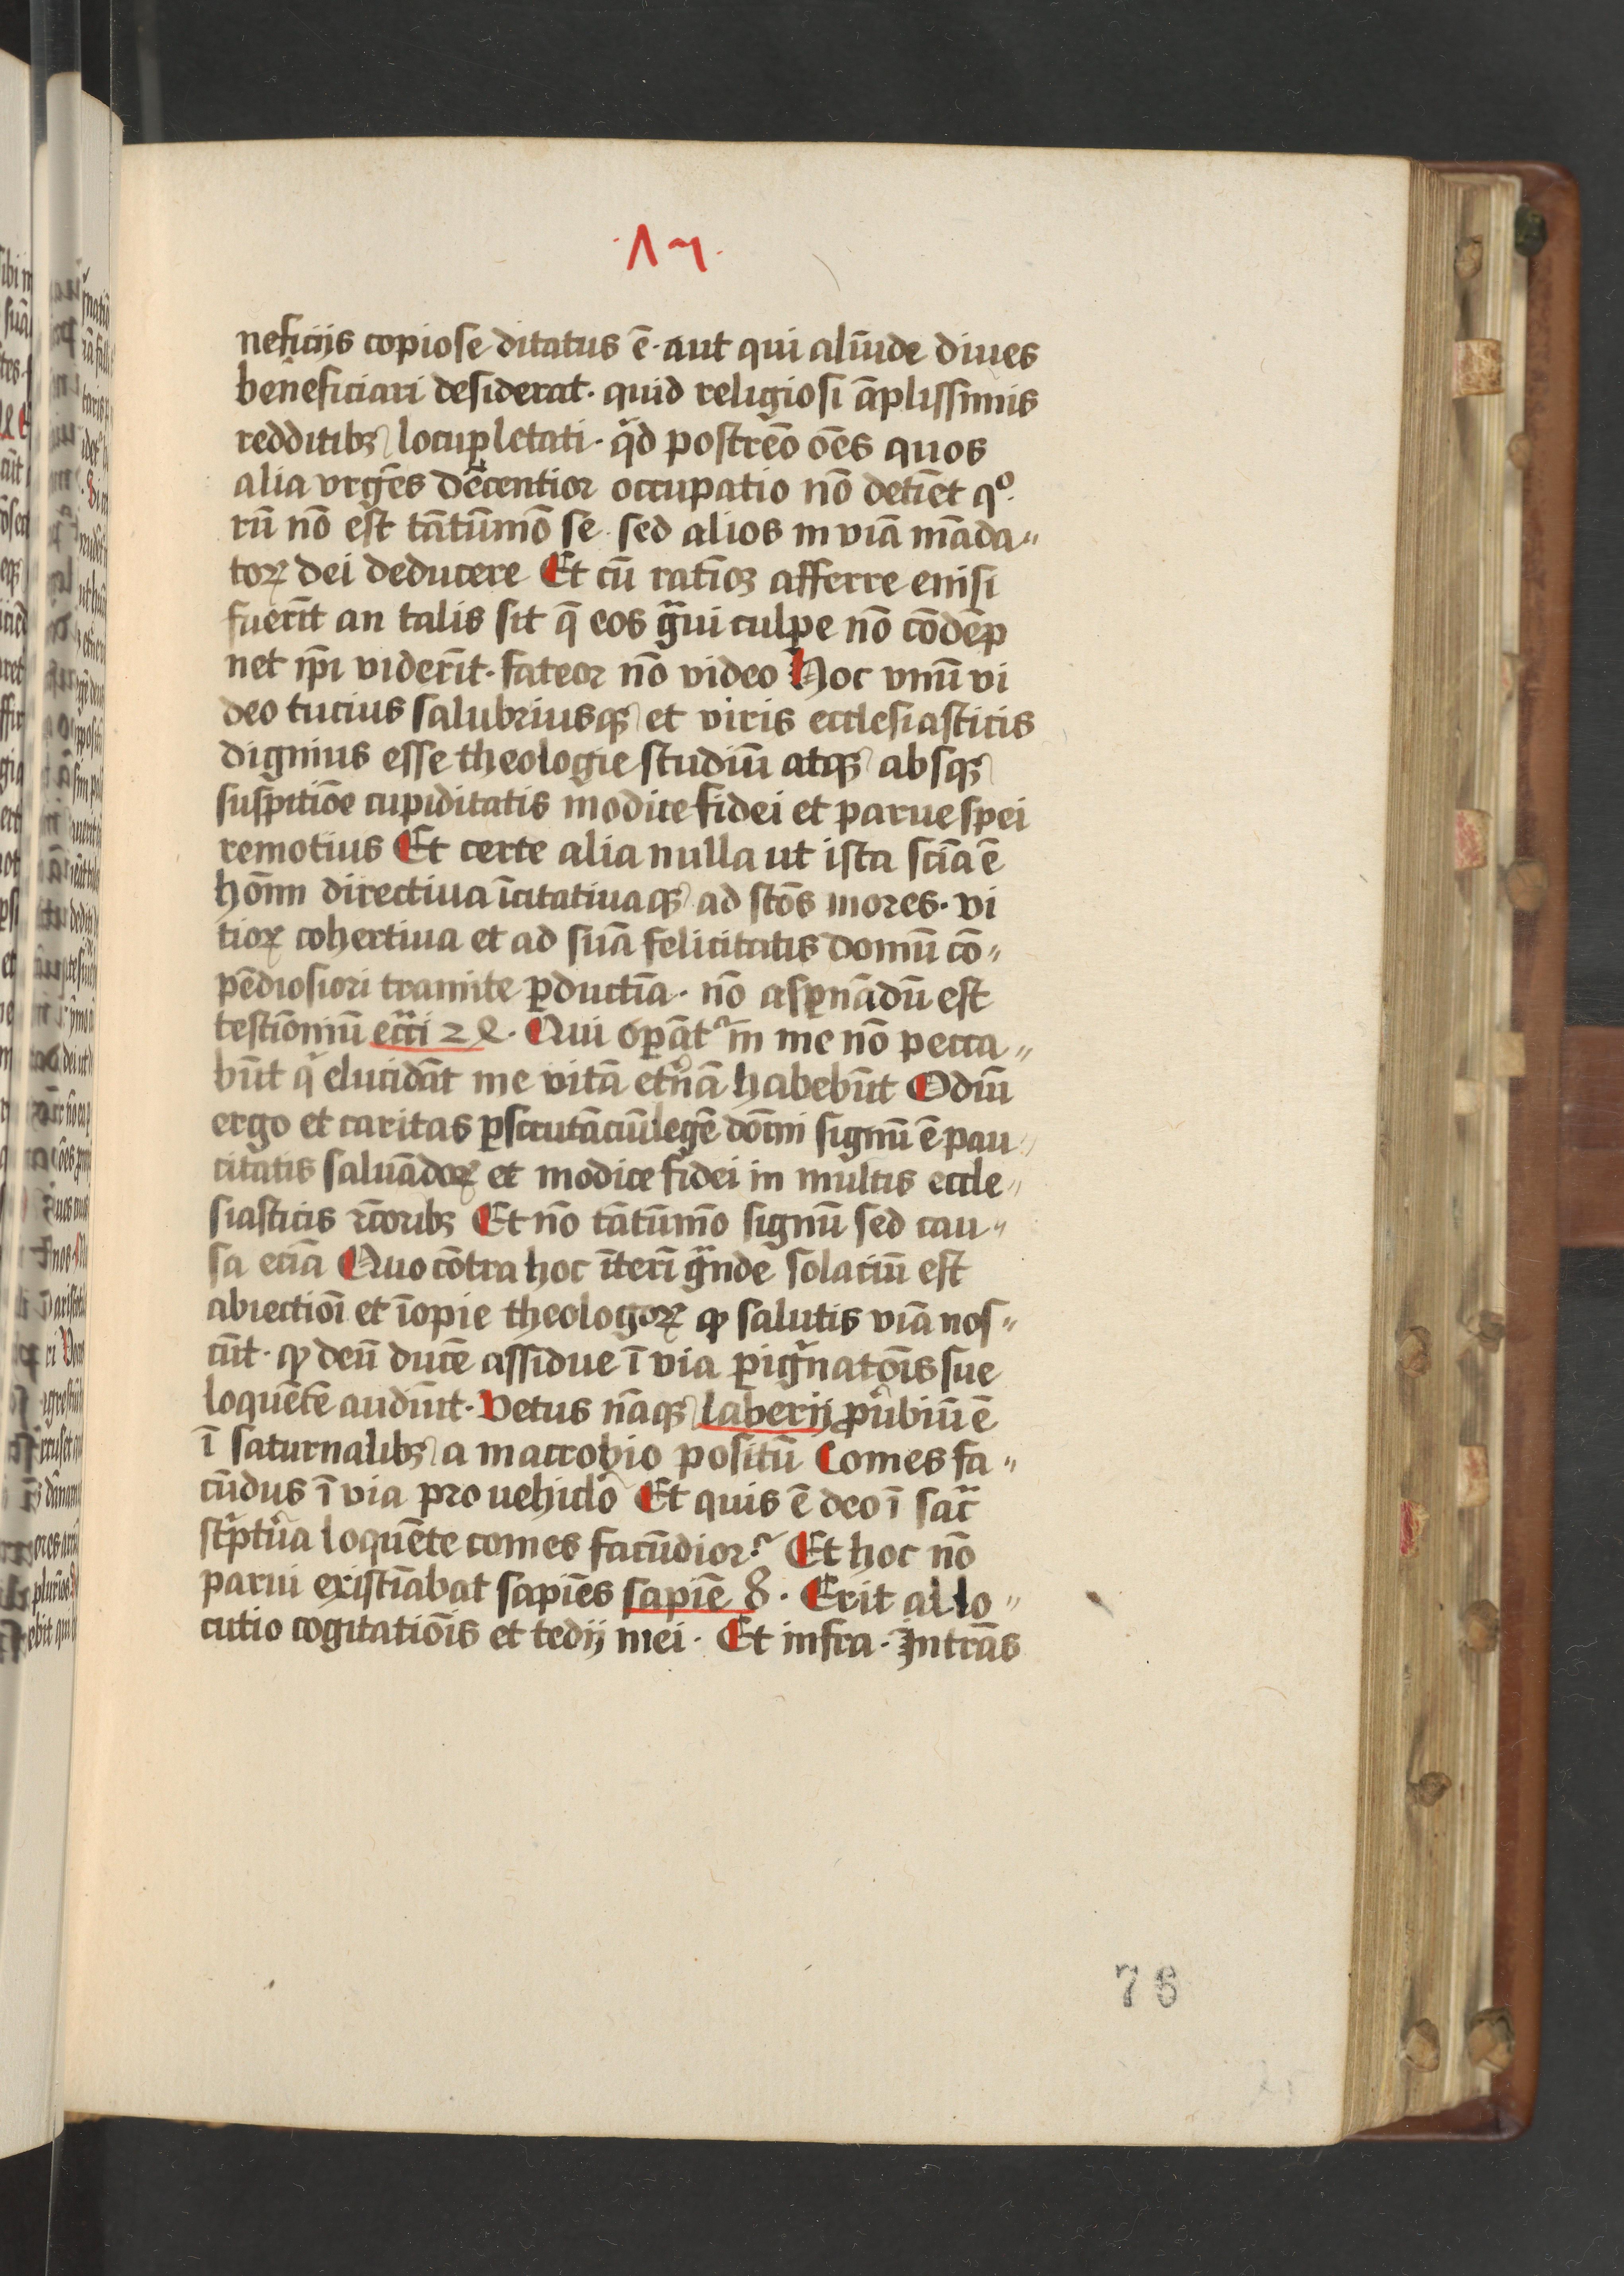 ·17·
neficijs copiose ditatus ē· aut qui aliūde diues
beneficiari desiderat· quid religiosi āplissimis
redditibꝫ locupletati· qͥd postrēo oēs quos
alia vrgēs decentior occupatio nō detīet qº·
rū nō est tātūmō se· sed alios in viā māda〃
toꝝ dei deducere Et cū ratiōꝫ afferre enisi
fuerīt an talis sit q̄ eos gͣui culpe nō cōdēp
net ip̄i viderīt· fateor nō video Hoc vnū vi
deo tucius salubriusqꝫ et viris ecclesiasticis
dignius esse theologie studiū atqꝫ absqꝫ
suspitiōe cupiditatis modice fidei et parue spei
remotius Et certe alia nulla ut ista scīa ē
hoīm directiua īcitatiuaqꝫ ad sctōs mores· vi
tioꝝ cohertiua et ad suā felicitatis domū cō〃
pēdiosiori tramite ꝑductīa· nō asꝑnādū est
testīoniū ecci 24· Qui oꝑātʳ in me nō pecca〃
būt qͥ elucidāt me vitā etͬnā habebūt Odiū
ergo et caritas ꝑscrutāciū legē dōmī signū ē pau〃
citatis saluādoꝝ et modice fidei in multis eccle〃
siasticis rc̄oribꝫ Et nō tātūmō signū sed cau〃
sa eciā Quo cōtra hoc īterī gͣnde solaciū est
abiectiōi et īopie theologoꝝ ꝙ salutis viā nos〃
cūt· ꝙ deū ducē assidue ī via ꝑigͥnatōis sue
loquētē audiūt· Vetus nāqꝫ laberij ꝓubiū ē
ī saturnalibꝫ a macrobio positū Comes fa〃
cūdus ī via pro uehiclo Et quis ē deo ī sacͣ
sc̄ptͥa loquēte comes facūdior? Et hoc nō
parui existīabat sapiēs sapiē 8· Erit allo〃
cutio cogitatiōis et tedij mei· Et infra· Intrās
76